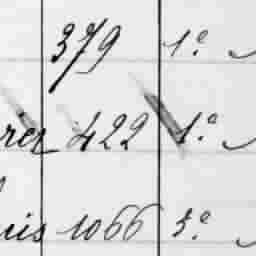 379 1.º
rier 422 1.º
uis 1066 3.º